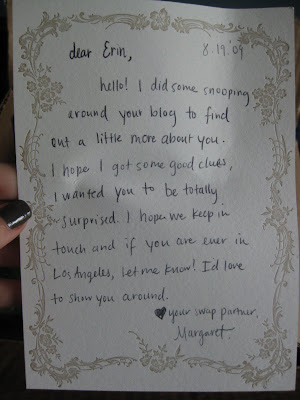 dear Erin, 8.19.'09
hello! I did some snooping
around your blog to find
out a little more about you.
I hope I got some good clues,
I wanted you to be totally
surprised. I hope we keep in
touch and if you are ever in
Los Angeles, let me know! I'd love
to show you around.
♥ your swap partner,
Margaret